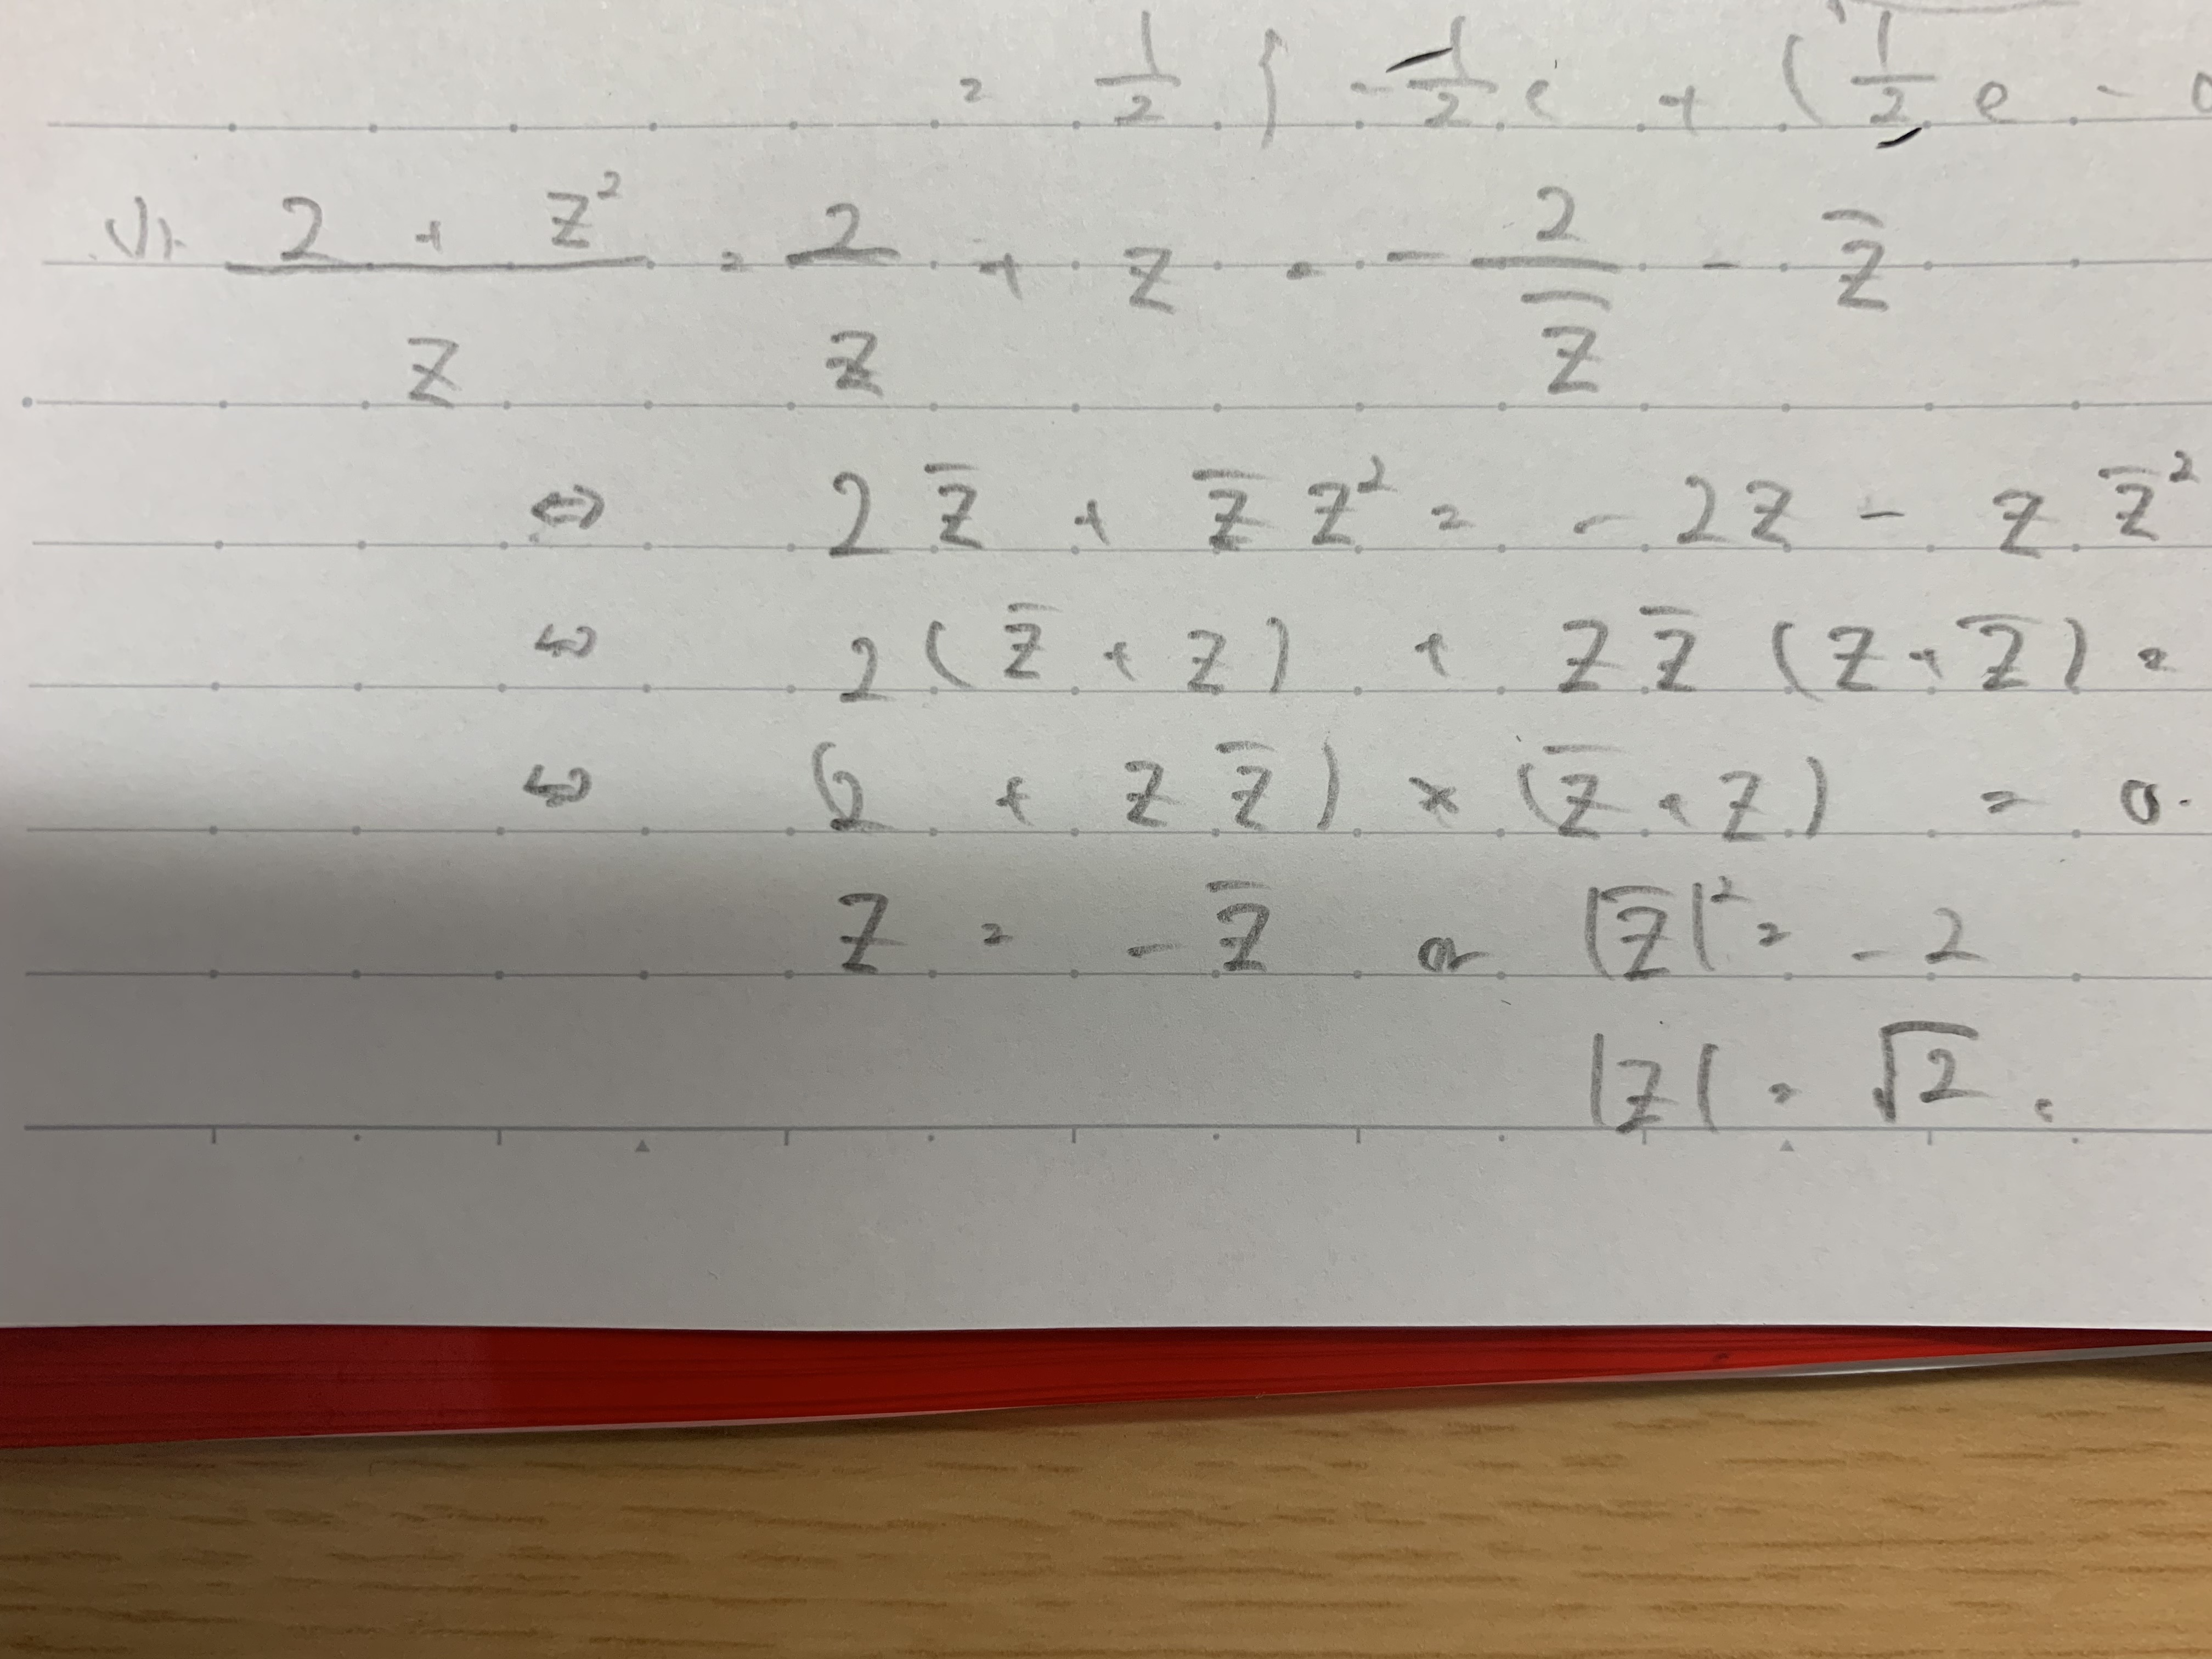 = 1/2 { - 1/2 e + ( 1/2 e -
(1). (2 + z²)/z = 2/z + z = - 2/z̄ - z̄
⇔ 2z̄ + z̄z² = -2z - zz̄²
⇔ 2(z̄ + z) + zz̄(z + z̄) =
⇔ (2 + zz̄) × (z̄ + z) = 0.
z = -z̄ or |z̄|² = -2
|z| = √2.